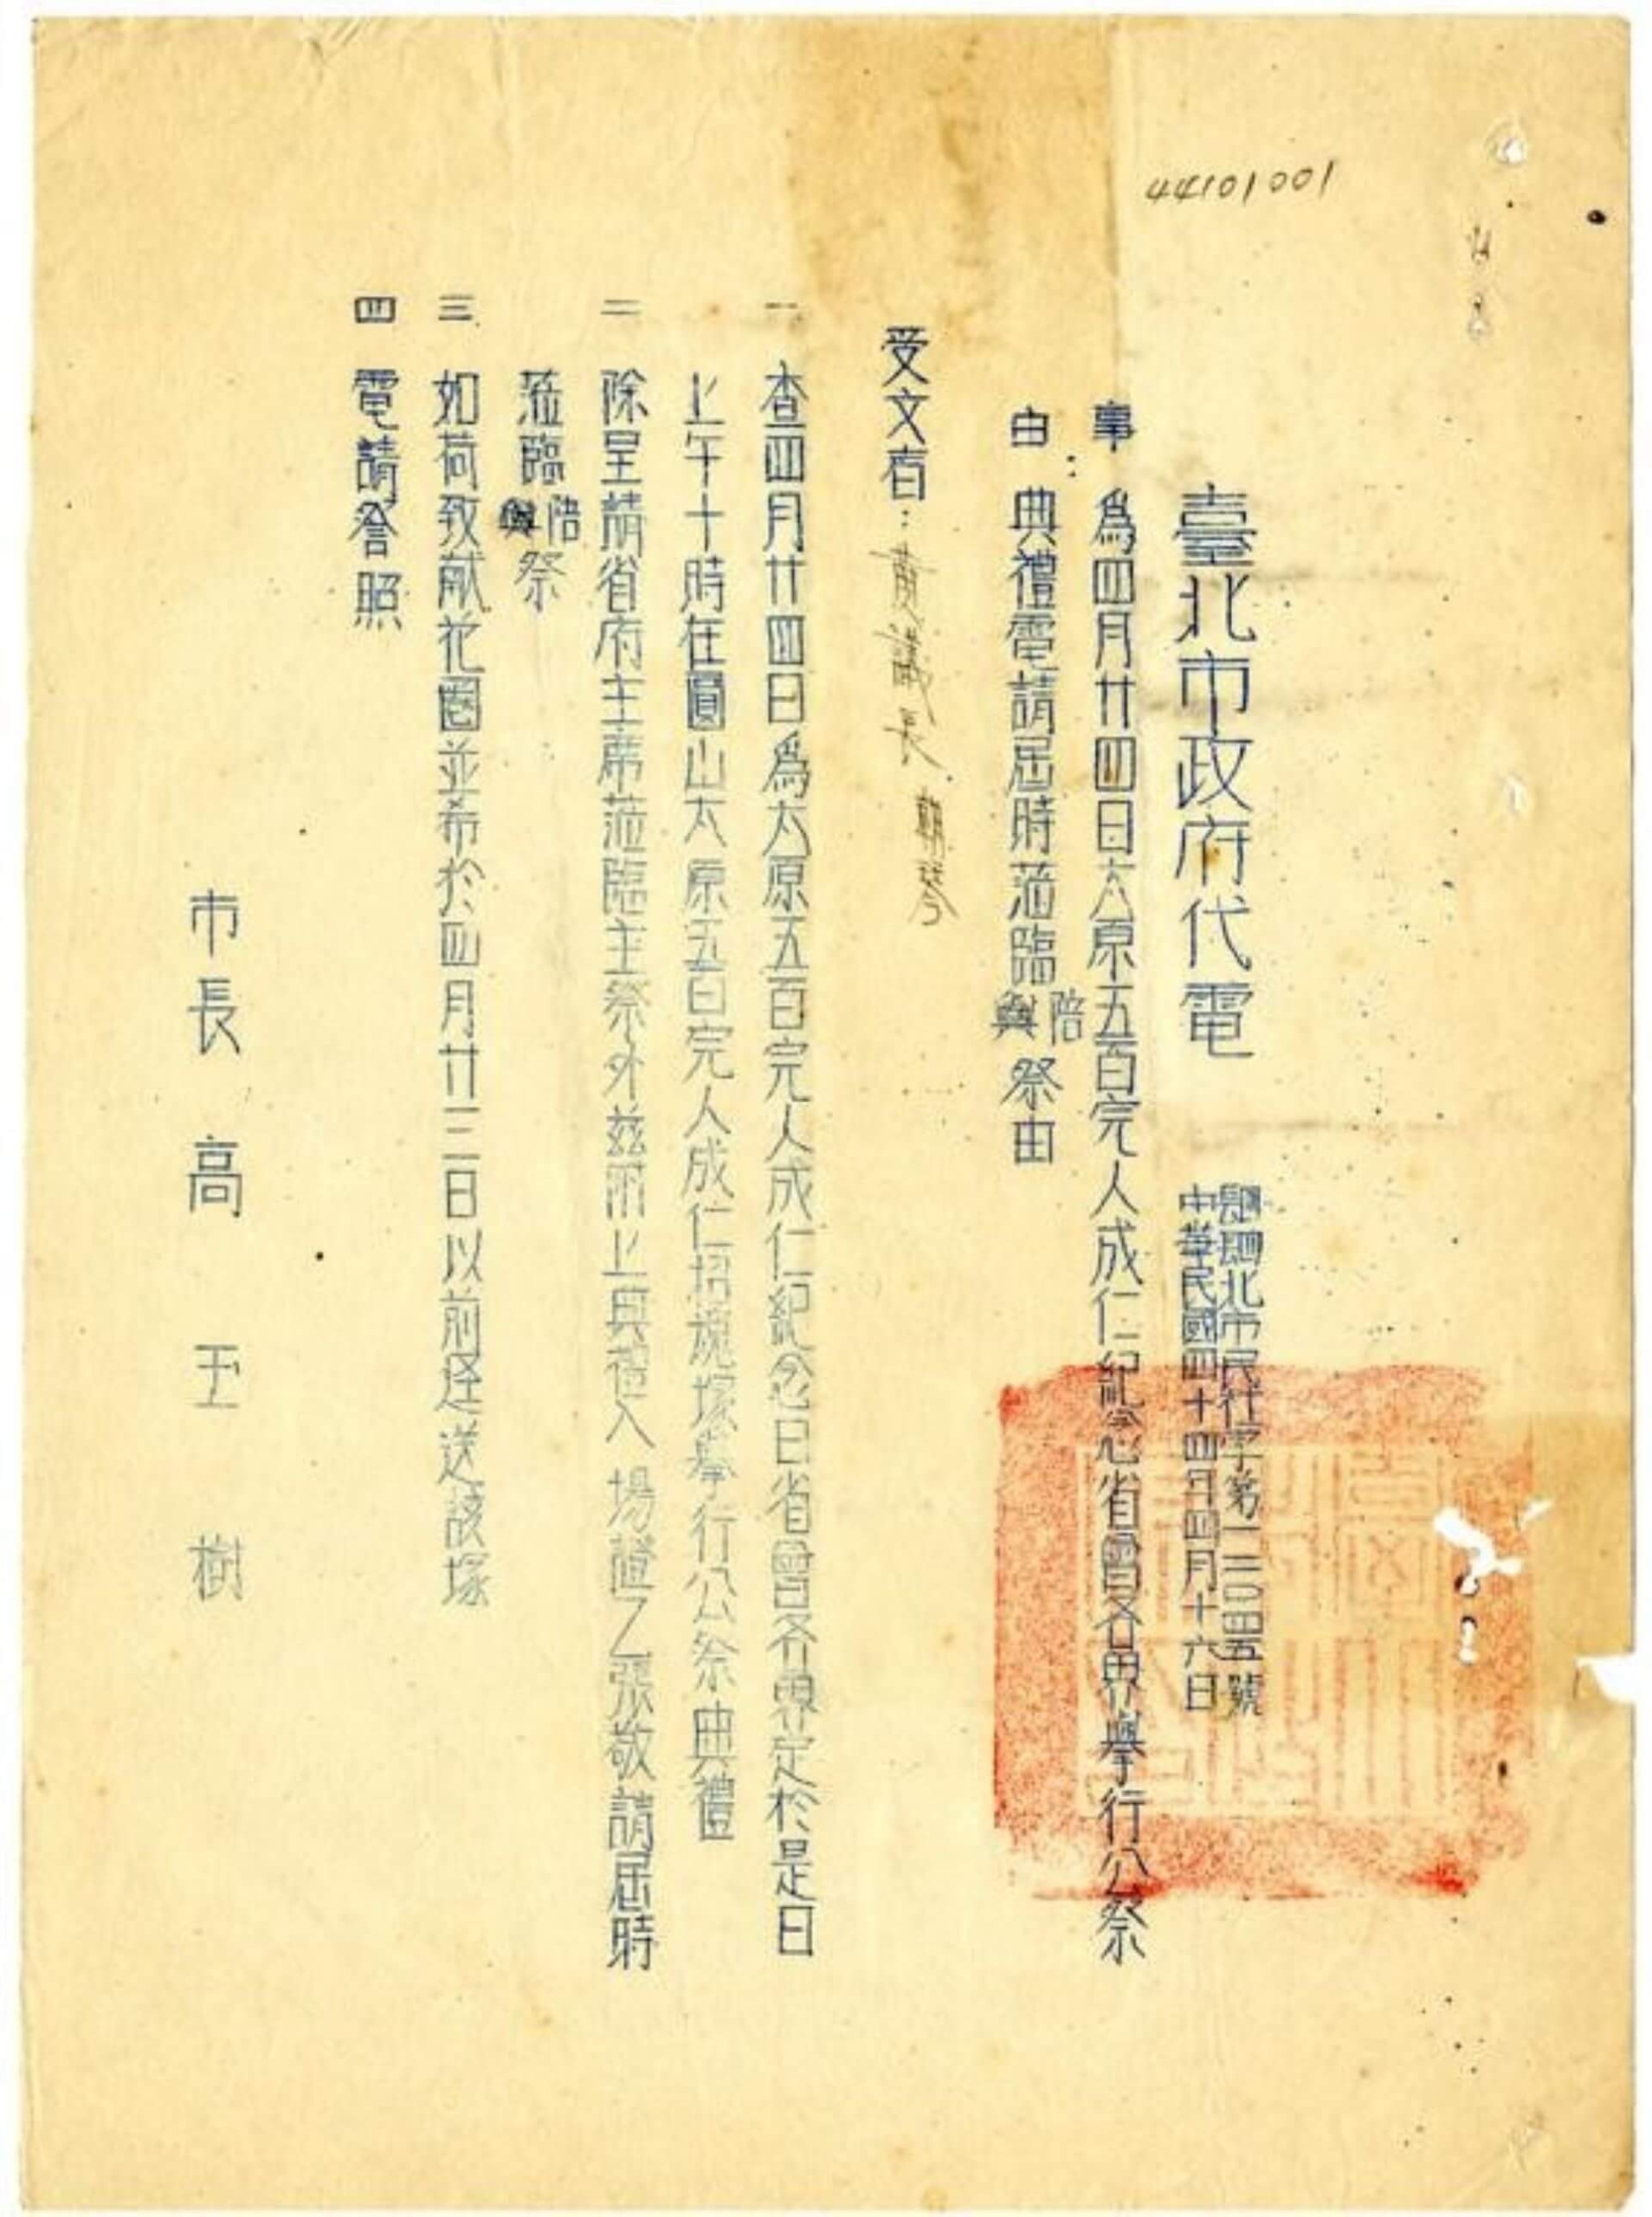 44101001
臺北市政府代電
肆肆北市民行字第一二〇四五號
中華民國四十四年四月十六日
事由：
為四月廿四日太原五百完人成仁紀念省會各界舉行公祭
典禮電請屆時蒞臨陪與祭由
受文者：黃議長朝琴
一 查四月廿四日為太原五百完人成仁紀念日省會各界定於是日
上午十時在圓山太原五百完人成仁招魂塚舉行公祭典禮
二 除呈請省府主席蒞臨主祭外茲附上典禮入場證乙張敬請屆時
蒞臨陪與祭
三 如荷致献花圈並希於四月廿三日以前逕送該塚
四 電請詧照
市長高玉樹